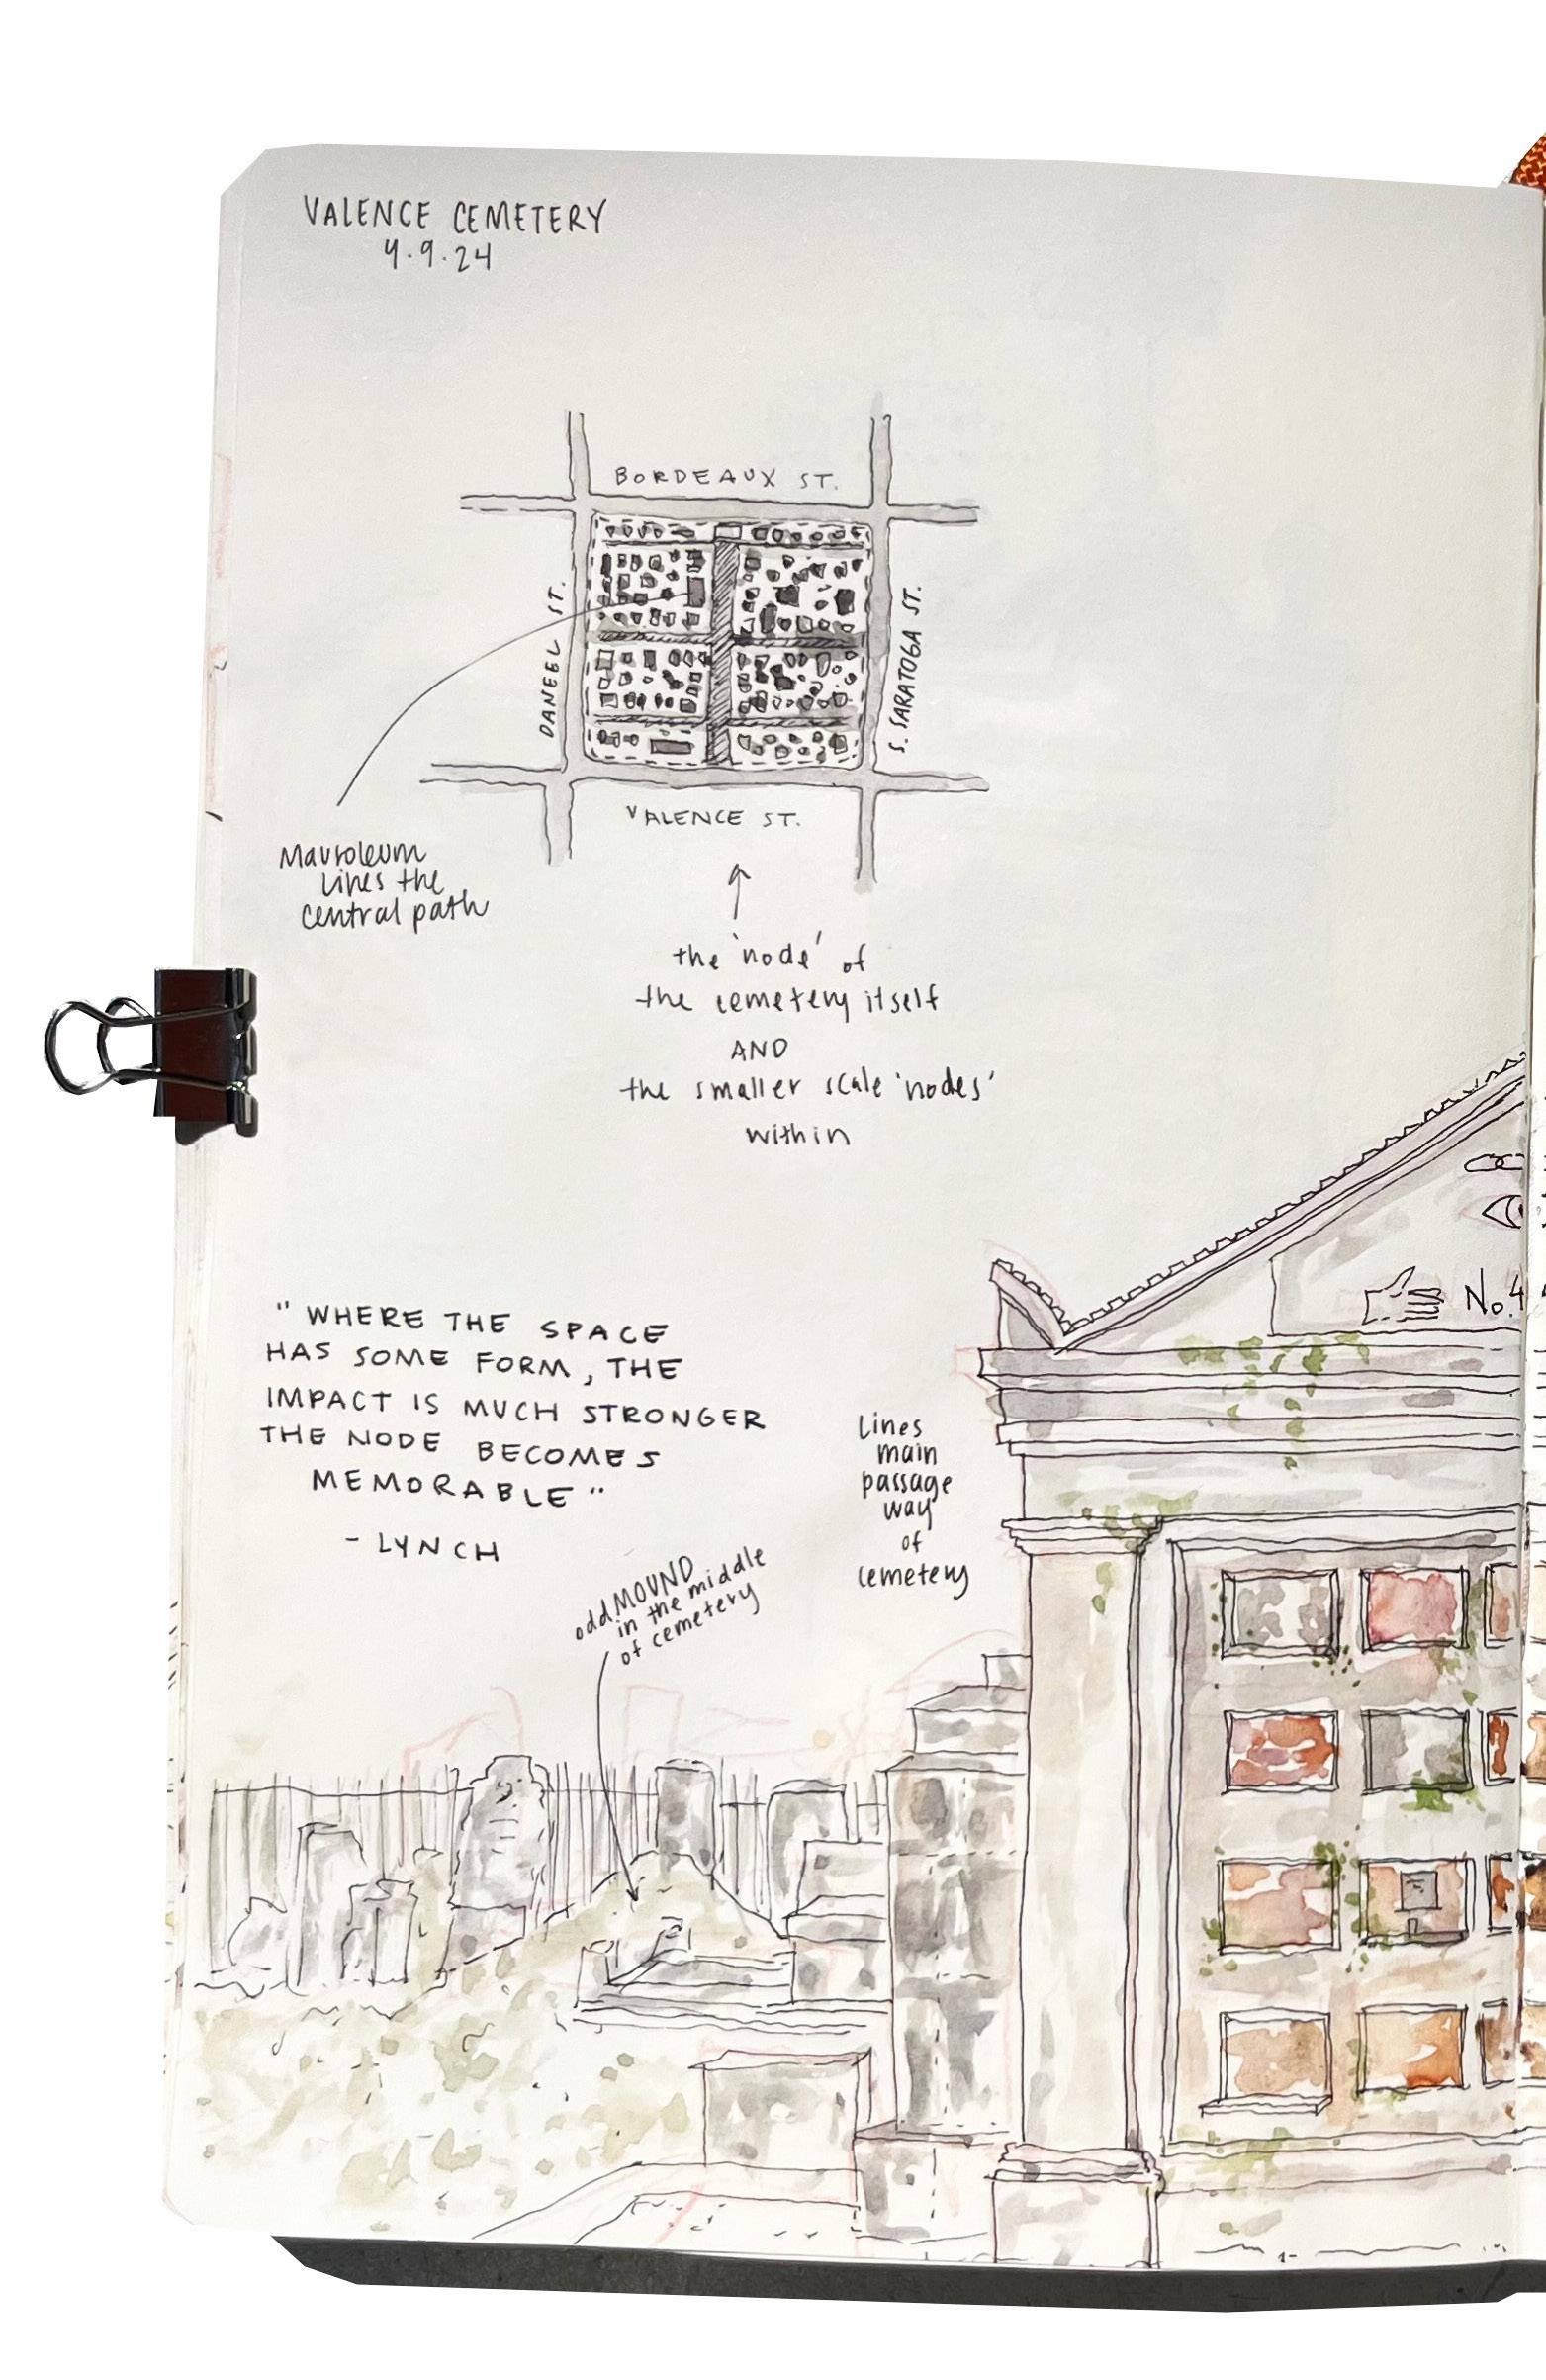 VALENCE CEMETERY
4.9.24
BORDEAUX ST.
DANEEL ST.
S. SARATOGA ST.
VALENCE ST.
Mausoleum
Lines the
central path
the 'node' of
the cemetery itself
AND
the smaller scale 'nodes'
within
No. 4
"WHERE THE SPACE
HAS SOME FORM, THE
IMPACT IS MUCH STRONGER
THE NODE BECOMES
MEMORABLE"
- LYNCH
Lines
main
passage
way
of
cemetery
odd MOUND
in the middle
of cemetery